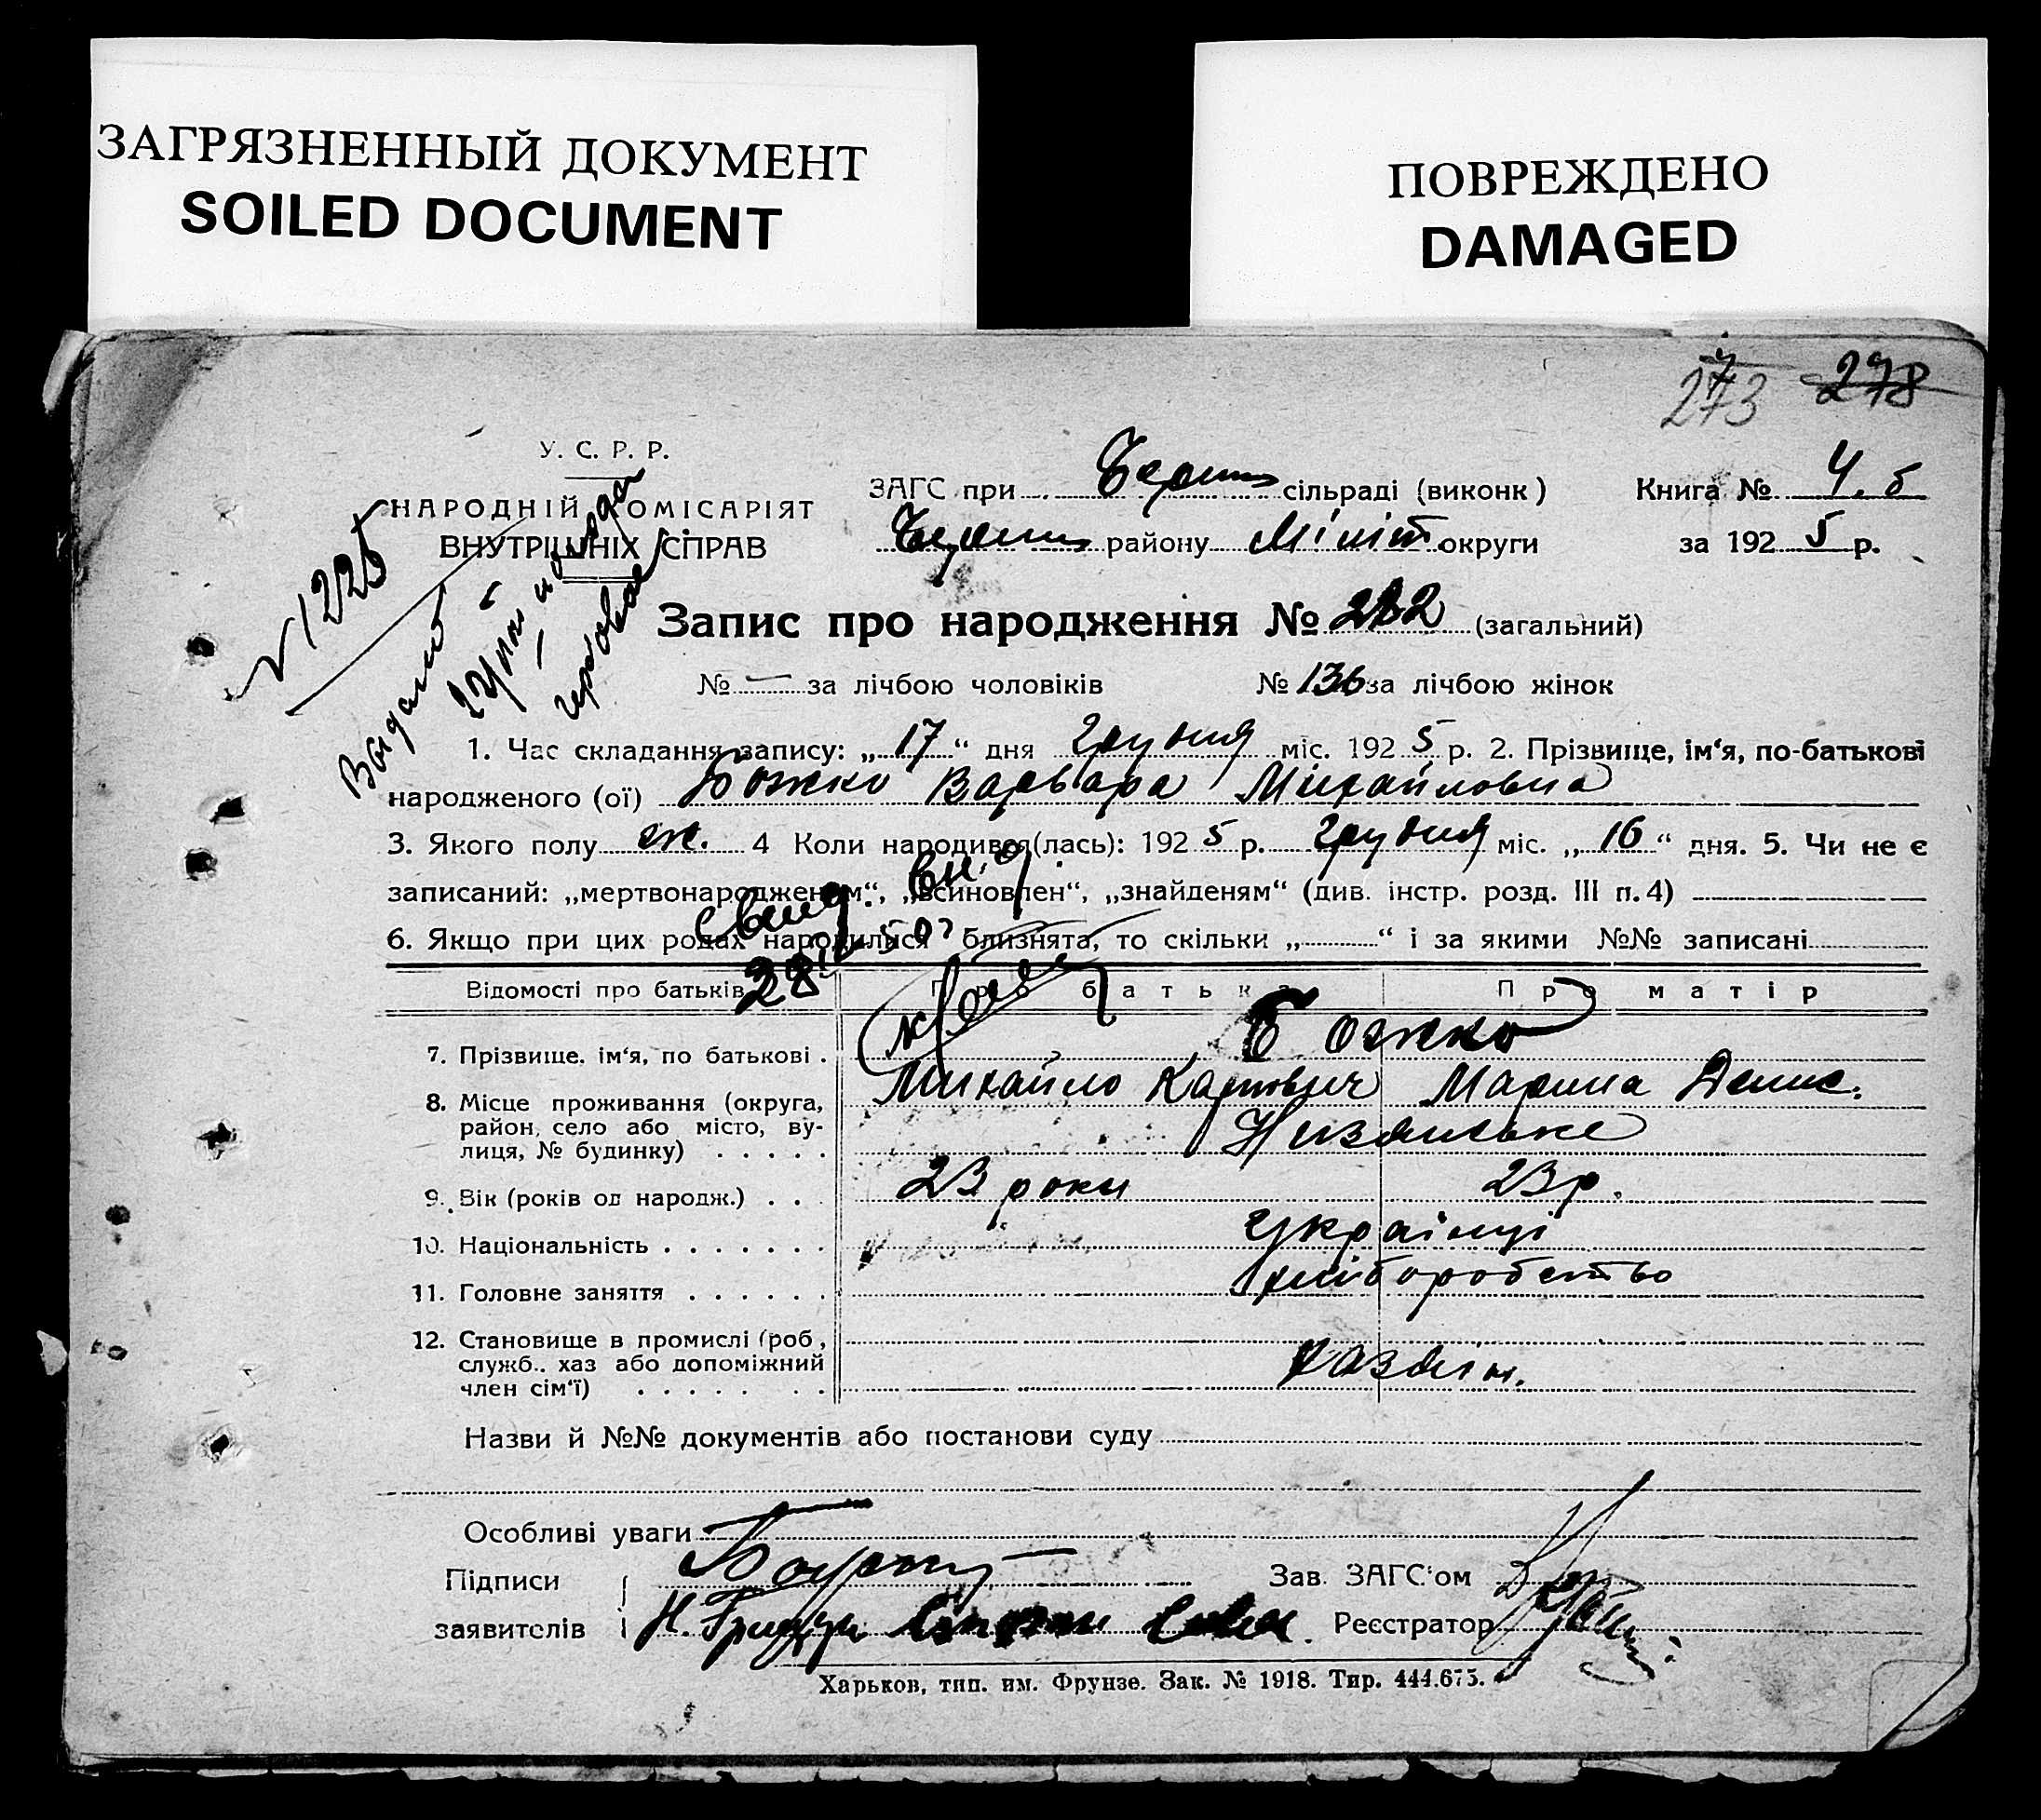 ЗАГРЯЗНЕННЫЙ ДОКУМЕНТ
SOILED DOCUMENT
ПОВРЕЖДЕНО
DAMAGED
273 278
У. С. Р. Р.
НАРОДНІЙ КОМІСАРІЯТ
ВНУТРІШНІХ СПРАВ
ЗАГС при сільраді (виконк) Книга № 4. б
району округи за 1925 р.
№ 1225
Запис про народження № 282 (загальний)
№ — за лічбою чоловіків № 136 за лічбою жінок
1. Час складання запису: „17“ дня Грудня міс. 1925 р. 2. Прізвище, ім‘я, по-батькові
народженого (ої) Божко Варвара Михайловна
3. Якого полу ж. 4 Коли народився(лась): 1925 р. Грудня міс. „16“ дня. 5. Чи не є
записаний: „мертвонародженям“, „всиновлен“, „знайденям“ (див. інстр. розд. III п. 4)
6. Якщо при цих родах народилися близнята, то скільки „ “ і за якими №№ записані
Відомості про батьків Про батька Про матір
7. Прізвище, ім‘я, по батькові . Божко
Михайло Карпович Марина Денис.
8. Місце проживання (округа,
район, село або місто, ву-
лиця, № будинку) . . . . .
9. Вік (років од народж.) . . . 23 роки 23 р.
10. Національність . . . . . . . Українці
11. Головне заняття . . . . . . хліборобство
12. Становище в промислі (роб,
служб., хаз або допоміжний
член сім‘ї) . . . . . . . хазяін.
Назви й №№ документів або постанови суду
Особливі уваги
Підписи Зав. ЗАГС‘ом
заявителів Реєстратор
Харьков, тип. им. Фрунзе. Зак. № 1918. Тир. 444.675.